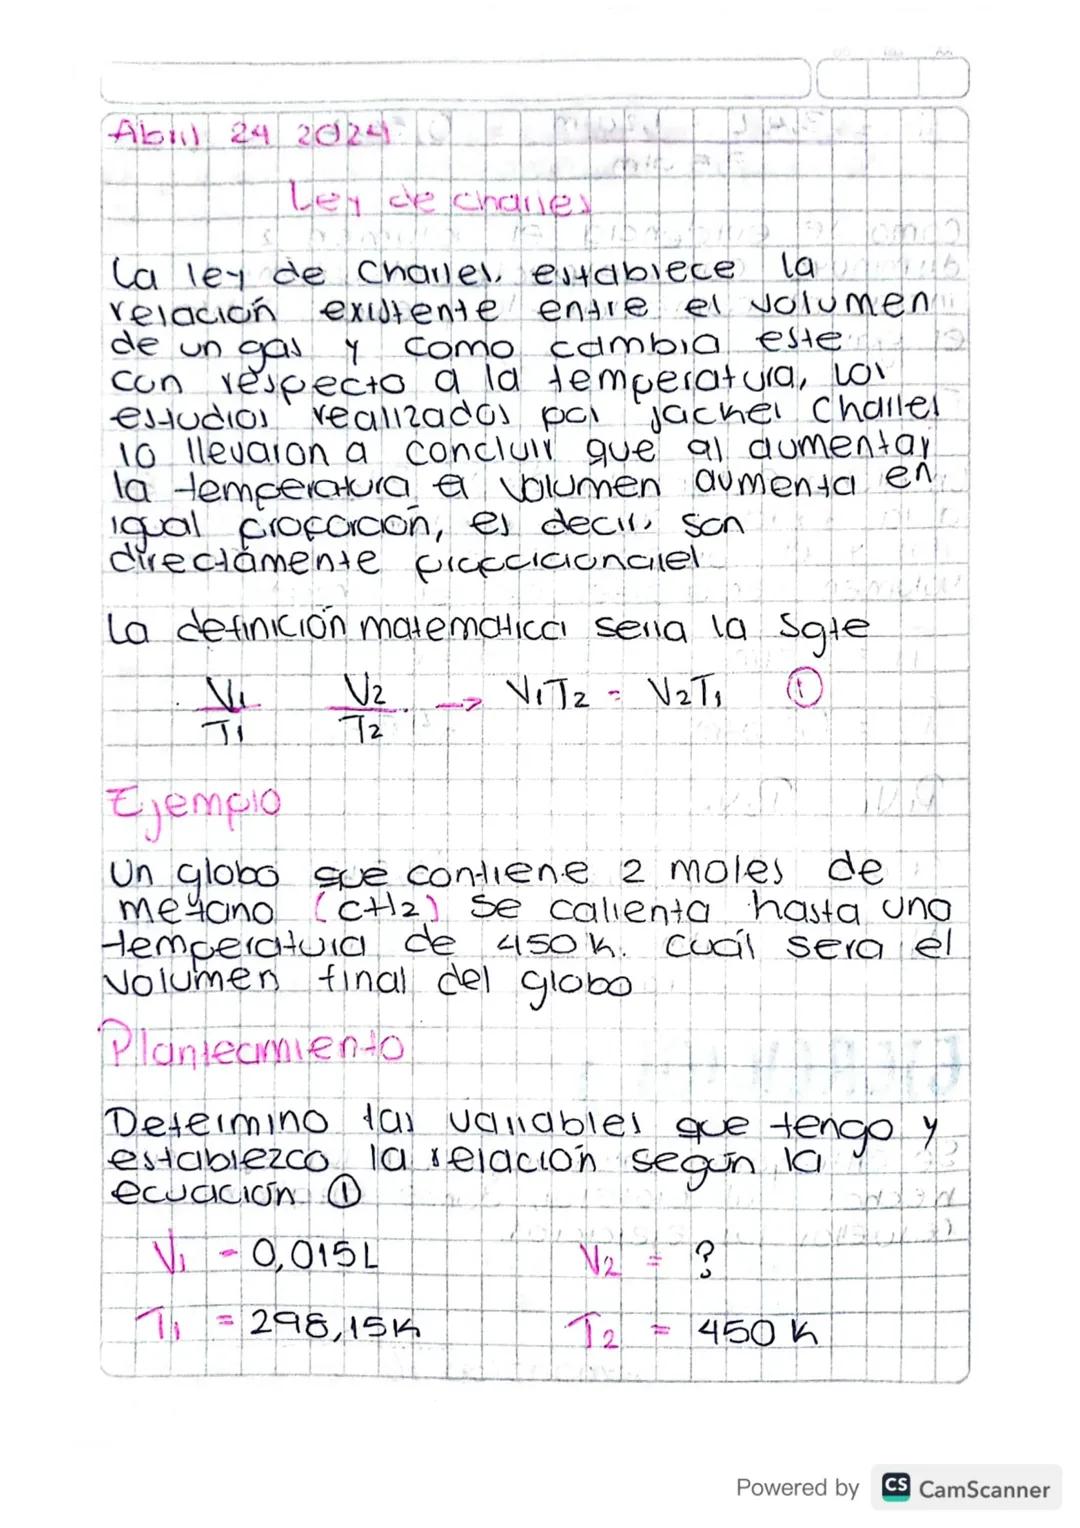 Abril 24 2024
Ley de charles
La ley de Charles. establece la
relación existente entre el volumen
de un gas y como cambia este
con respecto a la temperatura, los
estudios realizados por Jackes Charles
lo llevaron a concluir que al aumentar
la temperatura el volumen aumenta en
igual proporción, es decir, son
directamente proporcionales
La definición matematica seria la Sgte
V1/T1 V2/T2 → V1T2 = V2T1 ①
Ejemplo
Un globo que contiene 2 moles de
metano (CH2) se calienta hasta una
temperatura de 450 K. cuál sera el
volumen final del globo
Planteamiento
Determino las variables que tengo y
establezco la relación según la
ecuación ①
V1 = 0,015L V2 = ?
T1 = 298,15K T2 = 450 K
Powered by CS CamScanner